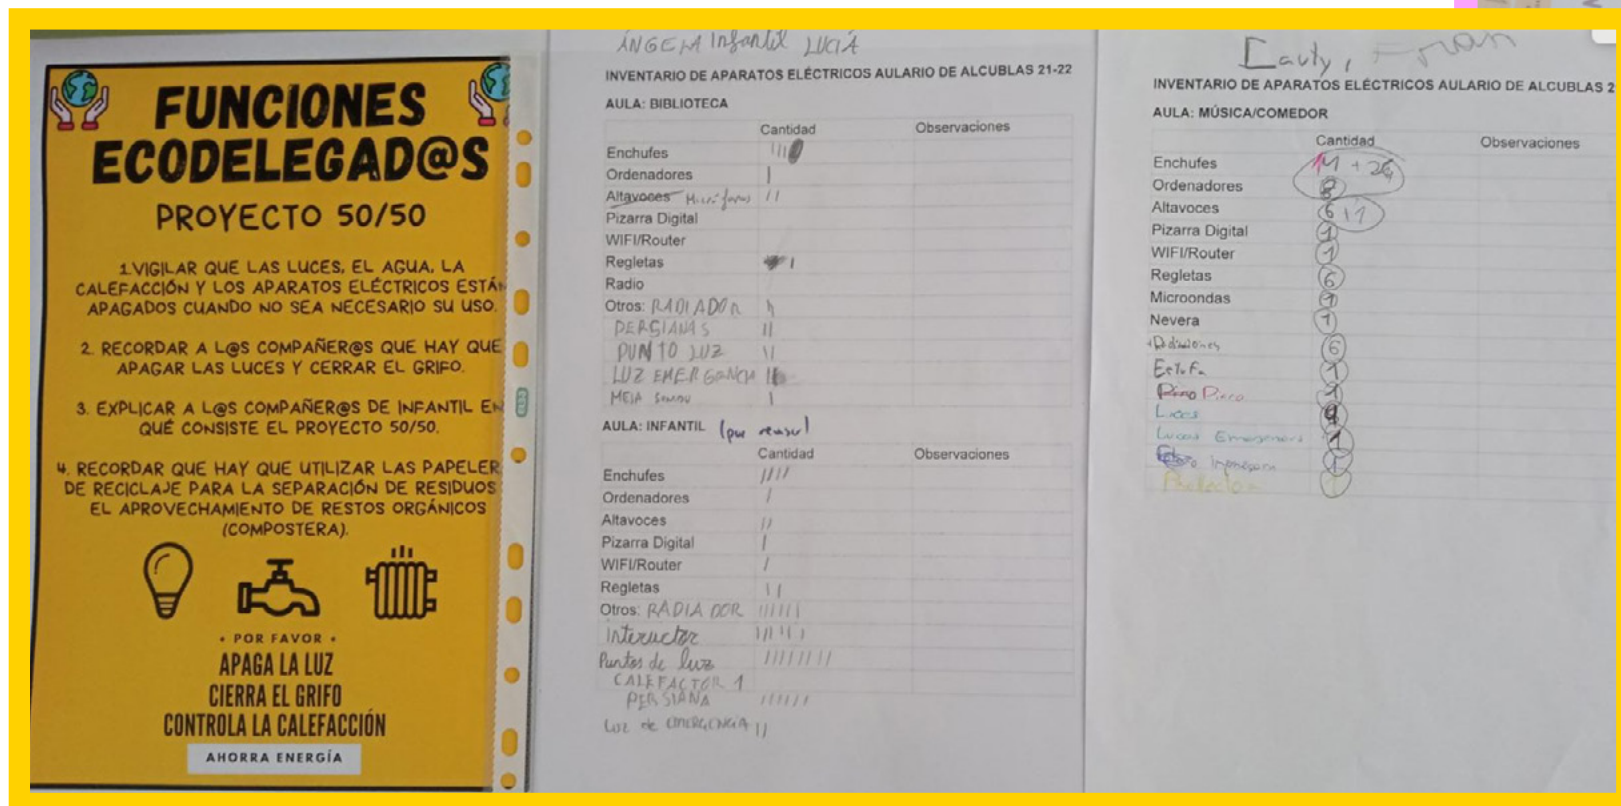 FUNCIONES
ECODELEGAD@S
PROYECTO 50/50
1.VIGILAR QUE LAS LUCES, EL AGUA, LA
CALEFACCIÓN Y LOS APARATOS ELÉCTRICOS ESTÁN
APAGADOS CUANDO NO SEA NECESARIO SU USO.
2. RECORDAR A L@S COMPAÑER@S QUE HAY QUE
APAGAR LAS LUCES Y CERRAR EL GRIFO.
3. EXPLICAR A L@S COMPAÑER@S DE INFANTIL EN
QUÉ CONSISTE EL PROYECTO 50/50.
4. RECORDAR QUE HAY QUE UTILIZAR LAS PAPELER
DE RECICLAJE PARA LA SEPARACIÓN DE RESIDUOS
EL APROVECHAMIENTO DE RESTOS ORGÁNICOS
(COMPOSTERA).
• POR FAVOR •
APAGA LA LUZ
CIERRA EL GRIFO
CONTROLA LA CALEFACCIÓN
AHORRA ENERGÍA
ÁNGELA Infantil LUCÍA
INVENTARIO DE APARATOS ELÉCTRICOS AULARIO DE ALCUBLAS 21-22
AULA: BIBLIOTECA
Cantidad Observaciones
Enchufes III
Ordenadores I
Altavoces Micrófonos II
Pizarra Digital
WIFI/Router
Regletas I
Radio
Otros: RADIADOR
PERSIANAS II
PUNTO LUZ II
LUZ EMERGENCIA
MESA I
AULA: INFANTIL
Cantidad Observaciones
Enchufes IIII
Ordenadores I
Altavoces II
Pizarra Digital I
WIFI/Router I
Regletas II
Otros: RADIADOR IIIIII
Inteructor IIIIII
Puntos de luz IIIIIIII
CALEFACTOR 1
PERSIANA IIIIII
Luz de EMERGENCIA II
Fran
INVENTARIO DE APARATOS ELÉCTRICOS AULARIO DE ALCUBLAS 2
AULA: MÚSICA/COMEDOR
Cantidad Observaciones
Enchufes
Ordenadores 8
Altavoces 6 + 1
Pizarra Digital 1
WIFI/Router 1
Regletas 6
Microondas 1
Nevera 1
6
Estufa 1
1
Luces
Luces 1
1
1